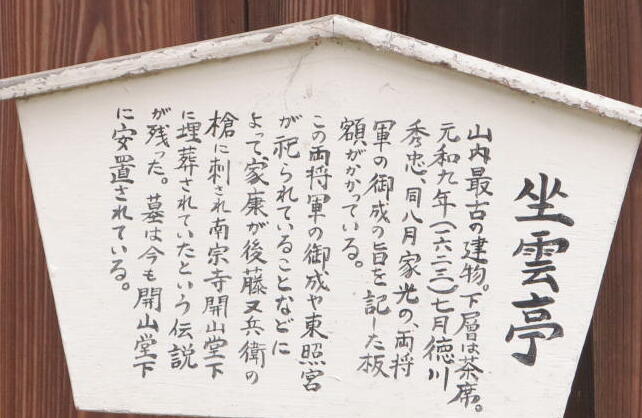 坐雲亭
山内最古の建物。下層は茶席。
元和九年(一六二三)七月徳川
秀忠、同八月家光の、両将
軍の御成の旨を記した板
額がかかっている。
この両将軍の御成や東照宮
が祀られていることなどに
よって家康が後藤又兵衛の
槍に刺され南宗寺開山堂下
に埋葬されていたという伝説
が残った。墓は今も開山堂下
に安置されている。